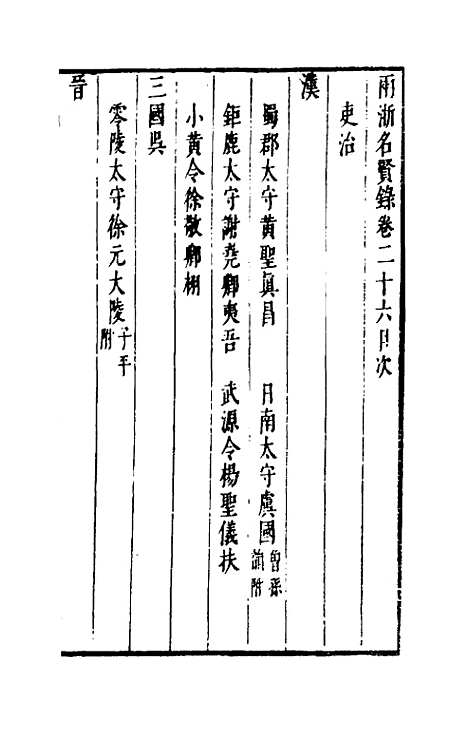 兩浙名賢錄卷二十六目次
吏治
漢
蜀郡太守黃聖眞昌　日南太守虞國曾孫附
鉅鹿太守謝堯卿夷吾　武源令楊聖儀扶
小黃令徐敬卿栩
三國吳
零陵太守徐元大陵子平附
晉